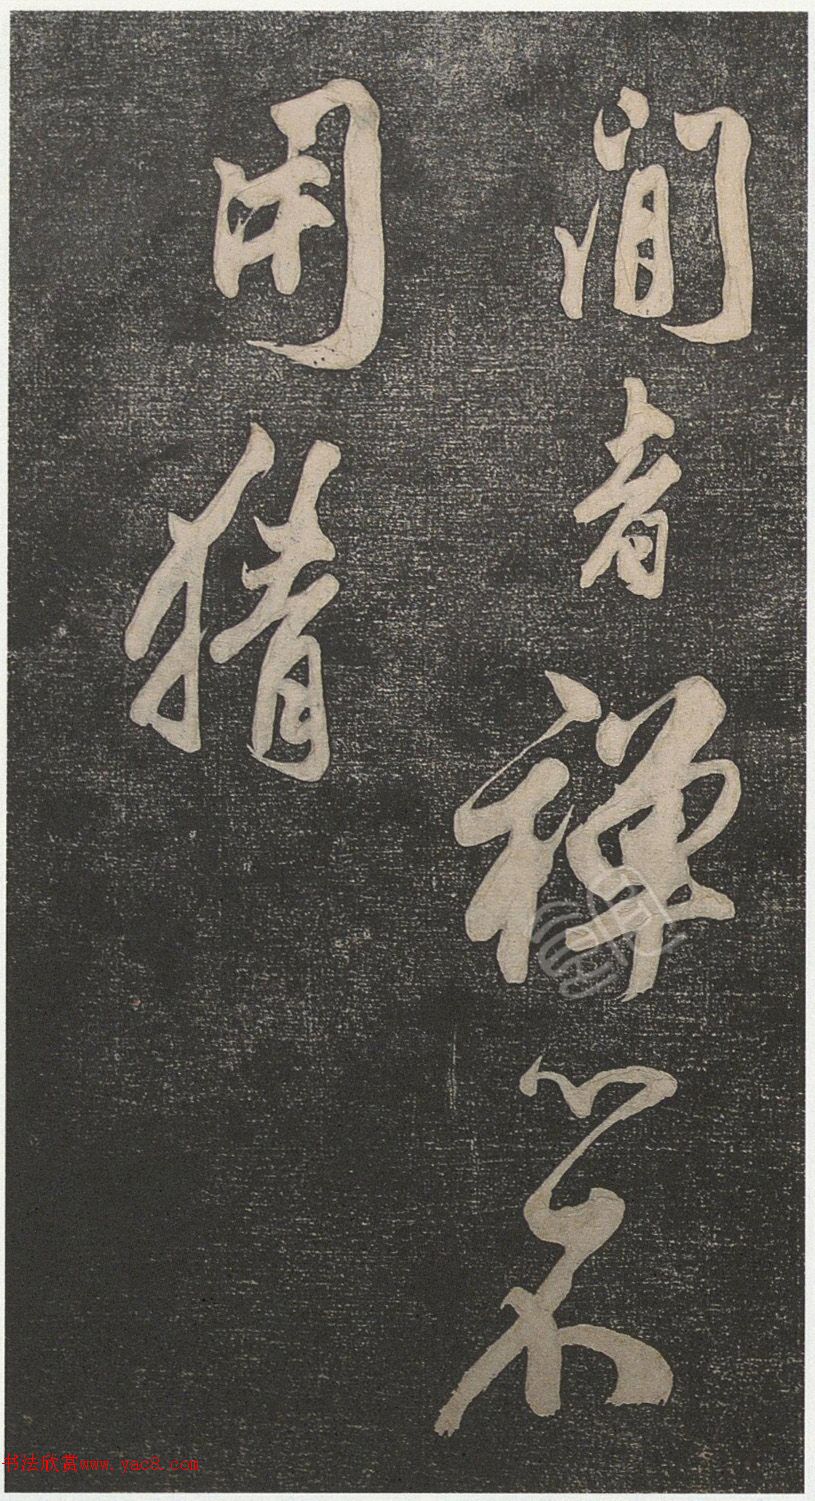 閒者禪
用猜
书法欣赏www.yac8.com